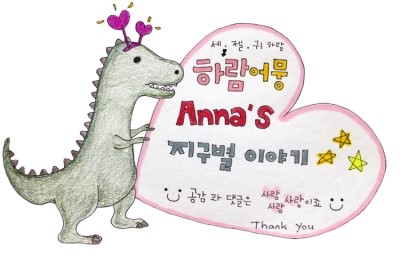 세.젤.귀 하람
하람어뭉
Anna's
지구별 이야기
공감과 댓글은 사랑 사랑 사랑이죠
Thank You